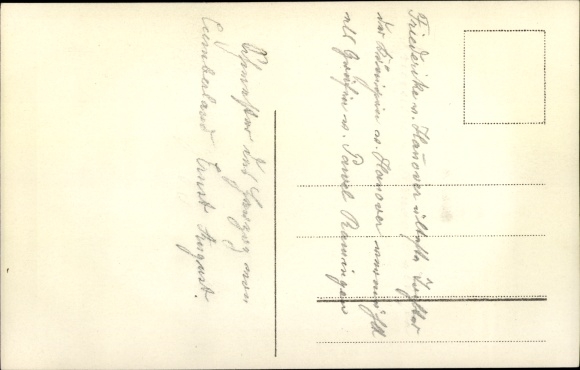 Friederike v. Hannover älteste Tochter
der Königin v. Hannover vermählt
als Gräfin v. Pawel Ramingen
Schwester des Herzog von
Cumberland Ernst August.